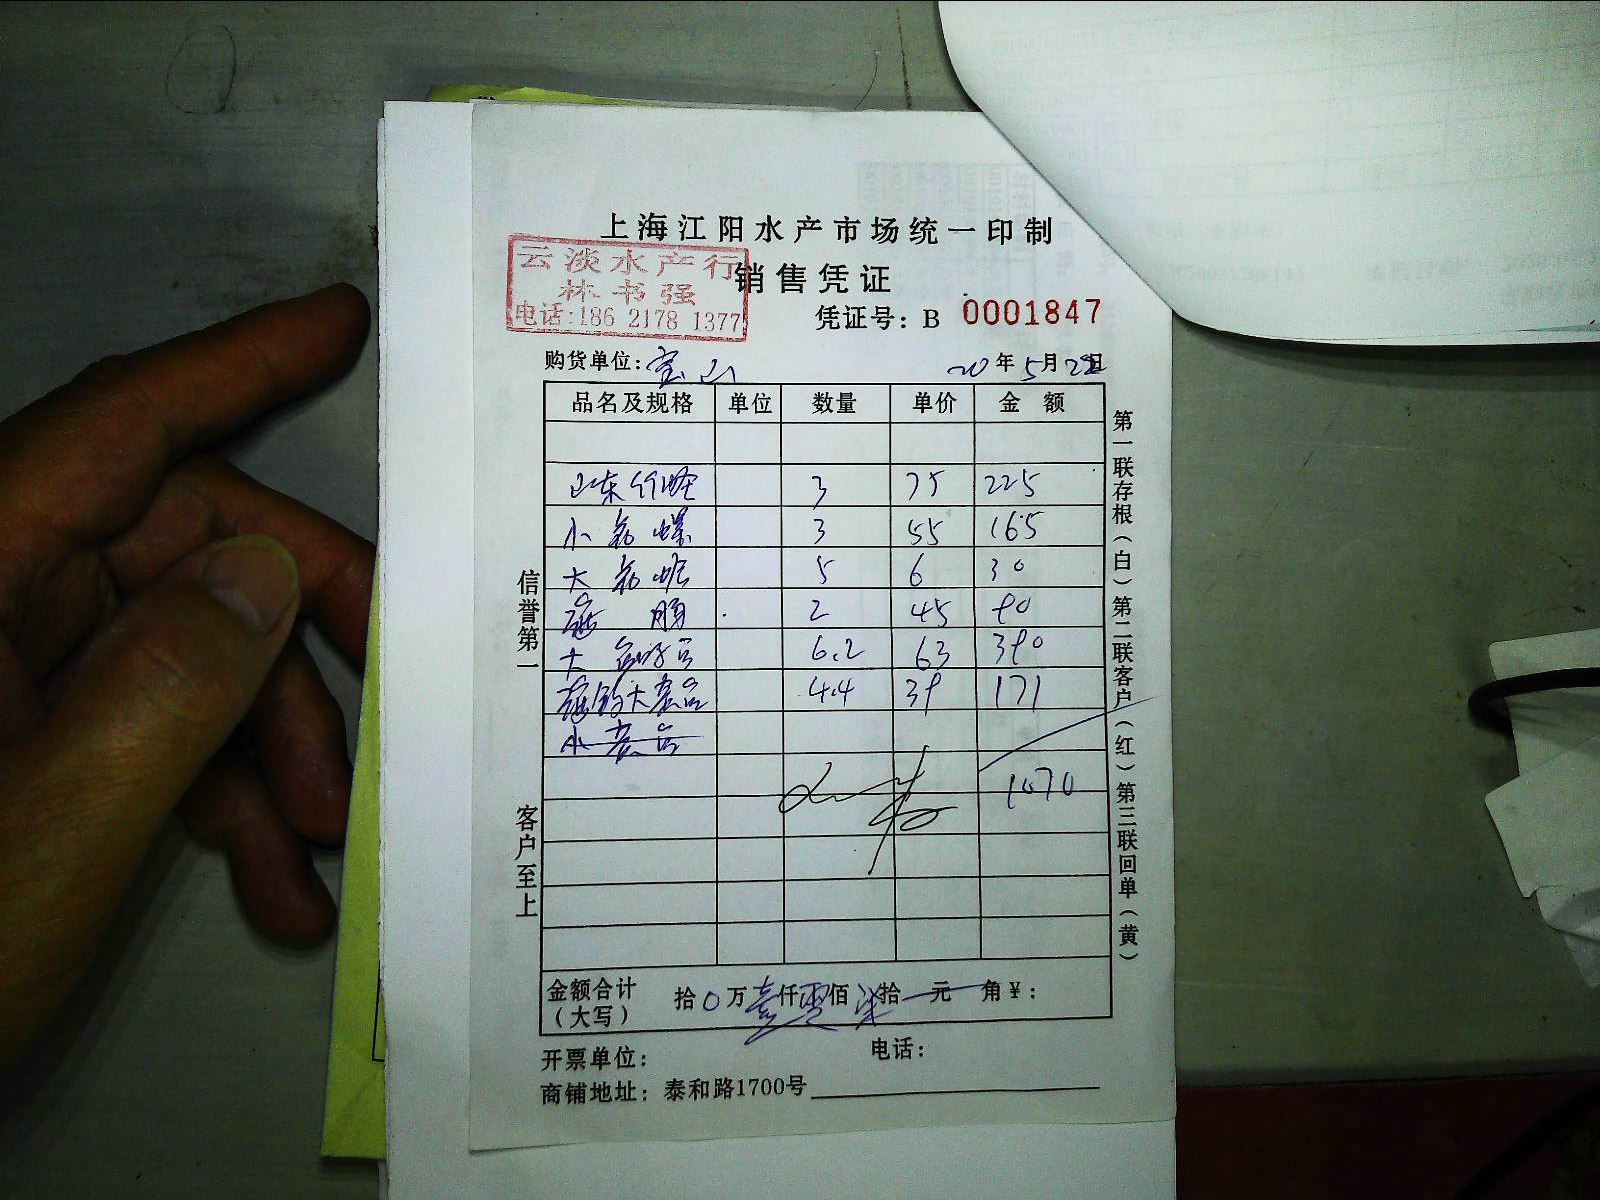 上海江阳水产市场统一印制
云淡水产行
林书强
电话:186 2178 1377
销售凭证
凭证号: B 0001847
购货单位: 宝山 20年5月22日
品名及规格 单位 数量 单价 金额
山东竹蛏 3 75 225
小 螺 3 55 165
大 5 6 30
2 45 90
大 6.2 63 390
大 4.4 39 171
小
1070
金额合计（大写） 拾0万壹仟零佰柒拾 元 角￥:
开票单位: 电话:
商铺地址: 泰和路1700号
信誉第一
客户至上
第一联存根(白) 第二联客户(红) 第三联回单(黄)